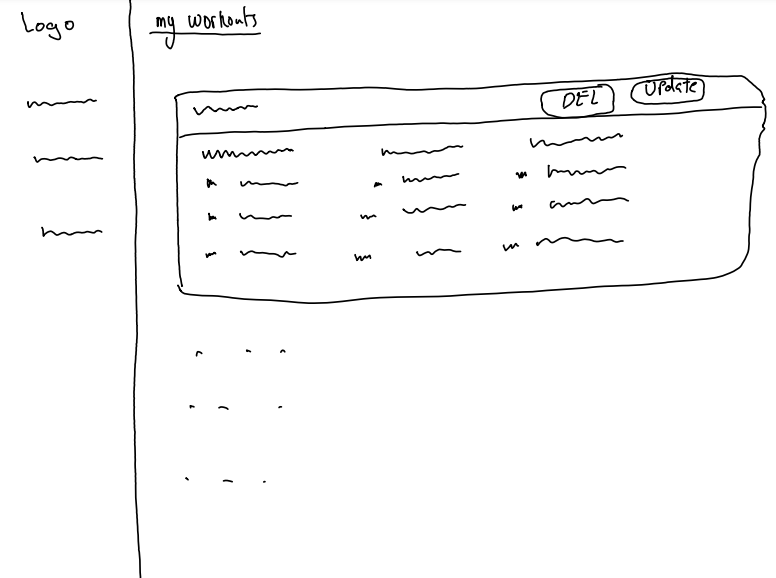 Logo
my workouts
DEL
UPdate